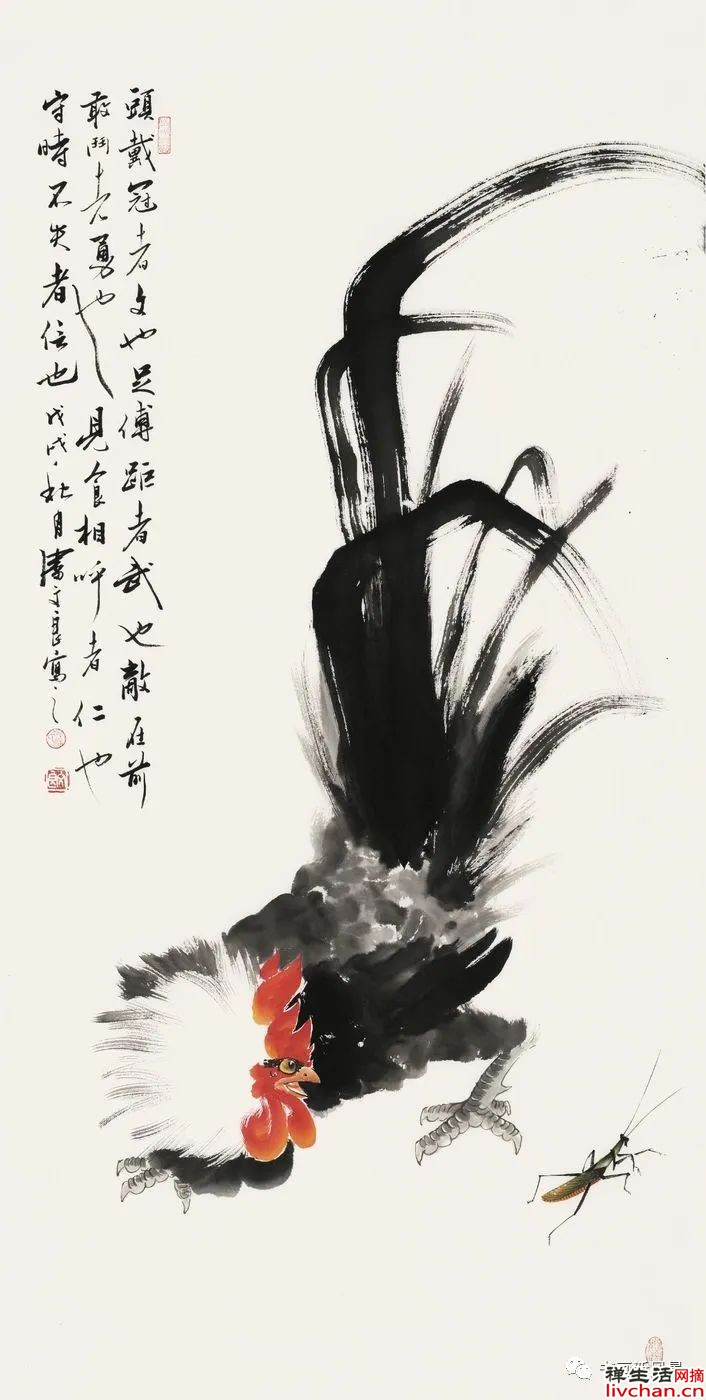 頭戴冠者文也足傅距者武也敵在前
敢鬥者勇也見食相呼者仁也
守時不失者信也戊戌秋月文良寫之
禅生活网摘
livchan.cn